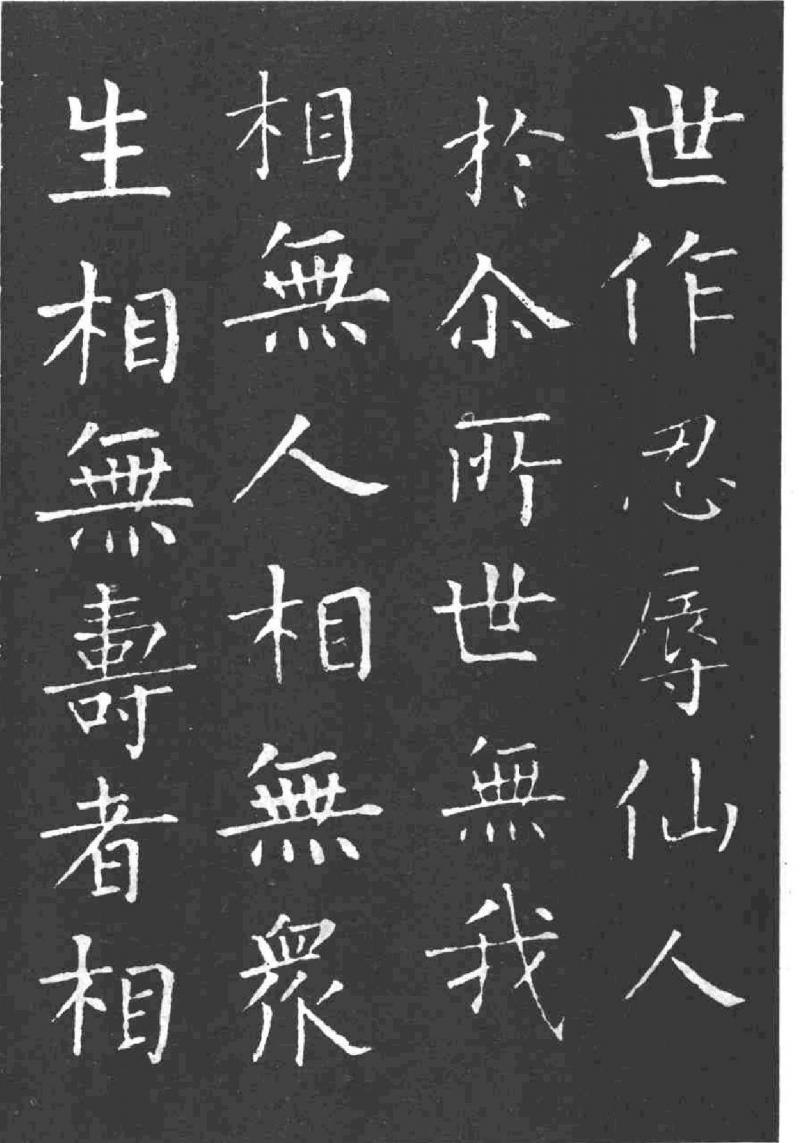 世作忍辱仙人
於尒所世無我
相無人相無眾
生相無壽者相